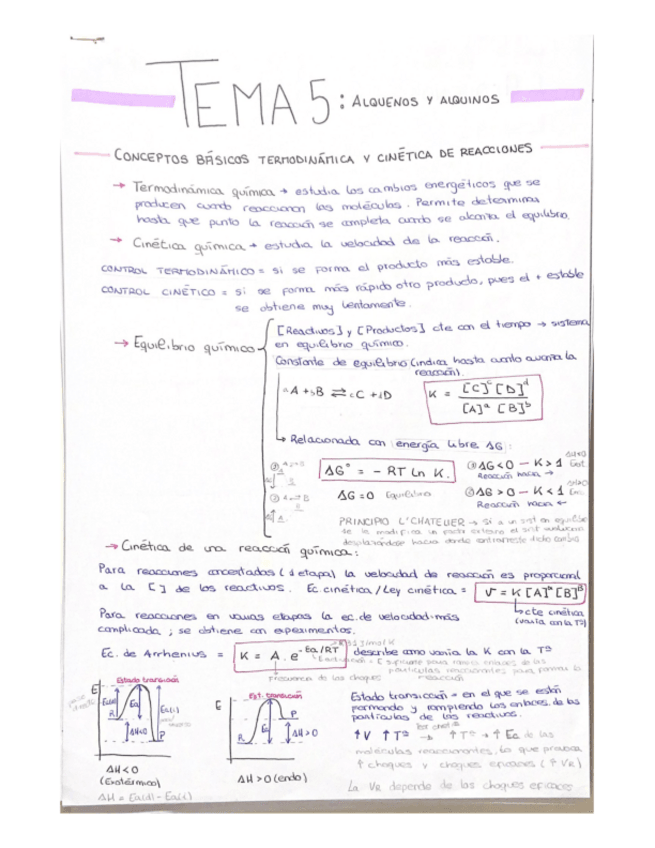 TEMA 5: ALQUENOS Y ALQUINOS
CONCEPTOS BÁSICOS TERMODINÁMICA Y CINÉTICA DE REACCIONES
→ Termodinámica química → estudia los cambios energéticos que se
producen cuando reaccionan las moléculas. Permite determinar
hasta que punto la reacción se completa cuando se alcanza el equilibrio.
→ Cinética química → estudia la velocidad de la reacción.
CONTROL TERMODINÁMICO = si se forma el producto más estable.
CONTROL CINÉTICO = si se forma más rápido otro producto, pues el + estable
se obtiene muy lentamente.
→ Equilibrio químico
[Reactivos] y [Productos] cte con el tiempo → sistema
en equilibrio químico.
Constante de equilibrio (indica hasta cuanto avanza la
reacción).
aA + bB ⇌ cC + dD
K = [C]^c [D]^d / [A]^a [B]^b
↳ Relacionada con energía libre ΔG:
ΔG° = - RT Ln K.
① ΔG < 0 — K > 1
Reacción hacia →
ΔG = 0 Equilibrio
② ΔG > 0 — K < 1
Reacción hacia ←
PRINCIPIO L'CHATELIER → Si a un sist en equilibrio
se le modifica un factor externo el sist evoluciona
desplazándose hacia donde contrarreste dicho cambio
→ Cinética de una reacción química:
Para reacciones concertadas (1 etapa) la velocidad de reacción es proporcional
a la [ ] de los reactivos. Ec cinética / Ley cinética = V = K [A]^α [B]^β
↳ cte cinética
(varía con la Tª)
Para reacciones en varias etapas la ec. de velocidad más
complicada; se obtiene con experimentos.
Ec. de Arrhenius = K = A. e^-Ea/RT describe como varía la K con la Tª
Frecuencia de los choques
Estado transición
E
Ea(d)
Ea
Ea(i)
R
ΔH<0
P
ΔH < 0
(Exotérmico)
ΔH = Ea(d) - Ea(i)
Est. transición
E
P
R
Ea
ΔH > 0
ΔH > 0 (endo)
Estado transición → en el que se están
formando y rompiendo los enlaces de las
partículas de los reactivos.
↑V ↑Tª → ↑Tª → ↑ Ec de las
moléculas reaccionantes, lo que provoca
↑ choques y choques eficaces (↑ VR)
La VR depende de los choques eficaces